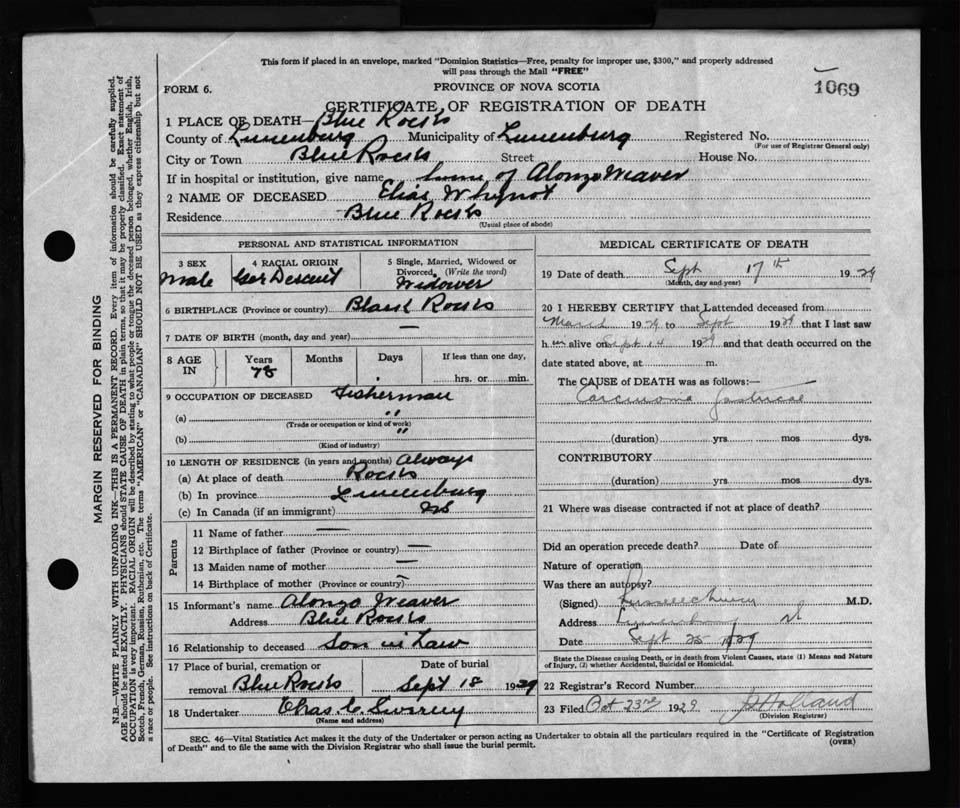 This form if placed in an envelope, marked "Dominion Statistics—Free, penalty for improper use, $300," and properly addressed
will pass through the Mail "FREE"
FORM 6.
PROVINCE OF NOVA SCOTIA
1069
CERTIFICATE OF REGISTRATION OF DEATH
1 PLACE OF DEATH—Blue Rocks
County of Lunenburg Municipality of Lunenburg Registered No.
(For use of Registrar General only)
City or Town Blue Rocks Street House No.
If in hospital or institution, give name home of Alonzo Weaver
2 NAME OF DECEASED Elias Whynot
Residence Blue Rocks
(Usual place of abode)
PERSONAL AND STATISTICAL INFORMATION
3 SEX
Male
4 RACIAL ORIGIN
Ger Descent
5 Single, Married, Widowed or
Divorced, (Write the word)
Widower
6 BIRTHPLACE (Province or country) Rocks
7 DATE OF BIRTH (month, day and year) —
8 AGE IN
Years
78
Months
Days
If less than one day,
hrs. or min.
9 OCCUPATION OF DECEASED Fisherman
(a) "
(Trade or occupation or kind of work)
(b) "
(Kind of industry)
10 LENGTH OF RESIDENCE (in years and months) Always
(a) At place of death Rocks
(b) In province Lunenburg
(c) In Canada (if an immigrant)
Parents
11 Name of father —
12 Birthplace of father (Province or country) —
13 Maiden name of mother —
14 Birthplace of mother (Province or country) —
15 Informant's name Alonzo Weaver
Address Blue Rocks
16 Relationship to deceased Son in Law
17 Place of burial, cremation or
removal Blue Rocks
Date of burial
Sept 18 1929
18 Undertaker Chas. C.
(Name and address)
MEDICAL CERTIFICATE OF DEATH
19 Date of death Sept 17th 1929
(Month, day and year)
20 I HEREBY CERTIFY that I attended deceased from
March 1929 to Sept 1929 that I last saw
h im alive on Sept 14 1929 and that death occurred on the
date stated above, at m.
The CAUSE of DEATH was as follows:—
Carcinoma
(duration) yrs mos dys.
CONTRIBUTORY
(duration) yrs mos dys.
21 Where was disease contracted if not at place of death?
Did an operation precede death? Date of
Nature of operation
Was there an autopsy?
(Signed) M.D.
Address
Date Sept 25 1929
State the Disease causing Death, or in death from Violent Causes, state (1) Means and Nature
of Injury, (2) whether Accidental, Suicidal or Homicidal.
22 Registrar's Record Number
23 Filed Oct 23rd 1929 Holland
(Division Registrar)
SEC. 46—Vital Statistics Act makes it the duty of the Undertaker or person acting as Undertaker to obtain all the particulars required in the "Certificate of Registration
of Death" and to file the same with the Division Registrar who shall issue the burial permit.
(OVER)
MARGIN RESERVED FOR BINDING
N.B.—WRITE PLAINLY WITH UNFADING INK—THIS IS A PERMANENT RECORD. Every item of information should be carefully supplied.
AGE should be stated EXACTLY. PHYSICIANS should STATE CAUSE OF DEATH in plain terms, so that it may be properly classified. Exact statement of
OCCUPATION is very important. RACIAL ORIGIN will be described by stating to what people or tongue the deceased person belonged, whether English, Irish,
Scotch, French, German, Russian, Ruthenian, etc. The terms "AMERICAN" or "CANADIAN" SHOULD NOT BE USED as they express citizenship but not
a race or people. See instructions on back of Certificate.